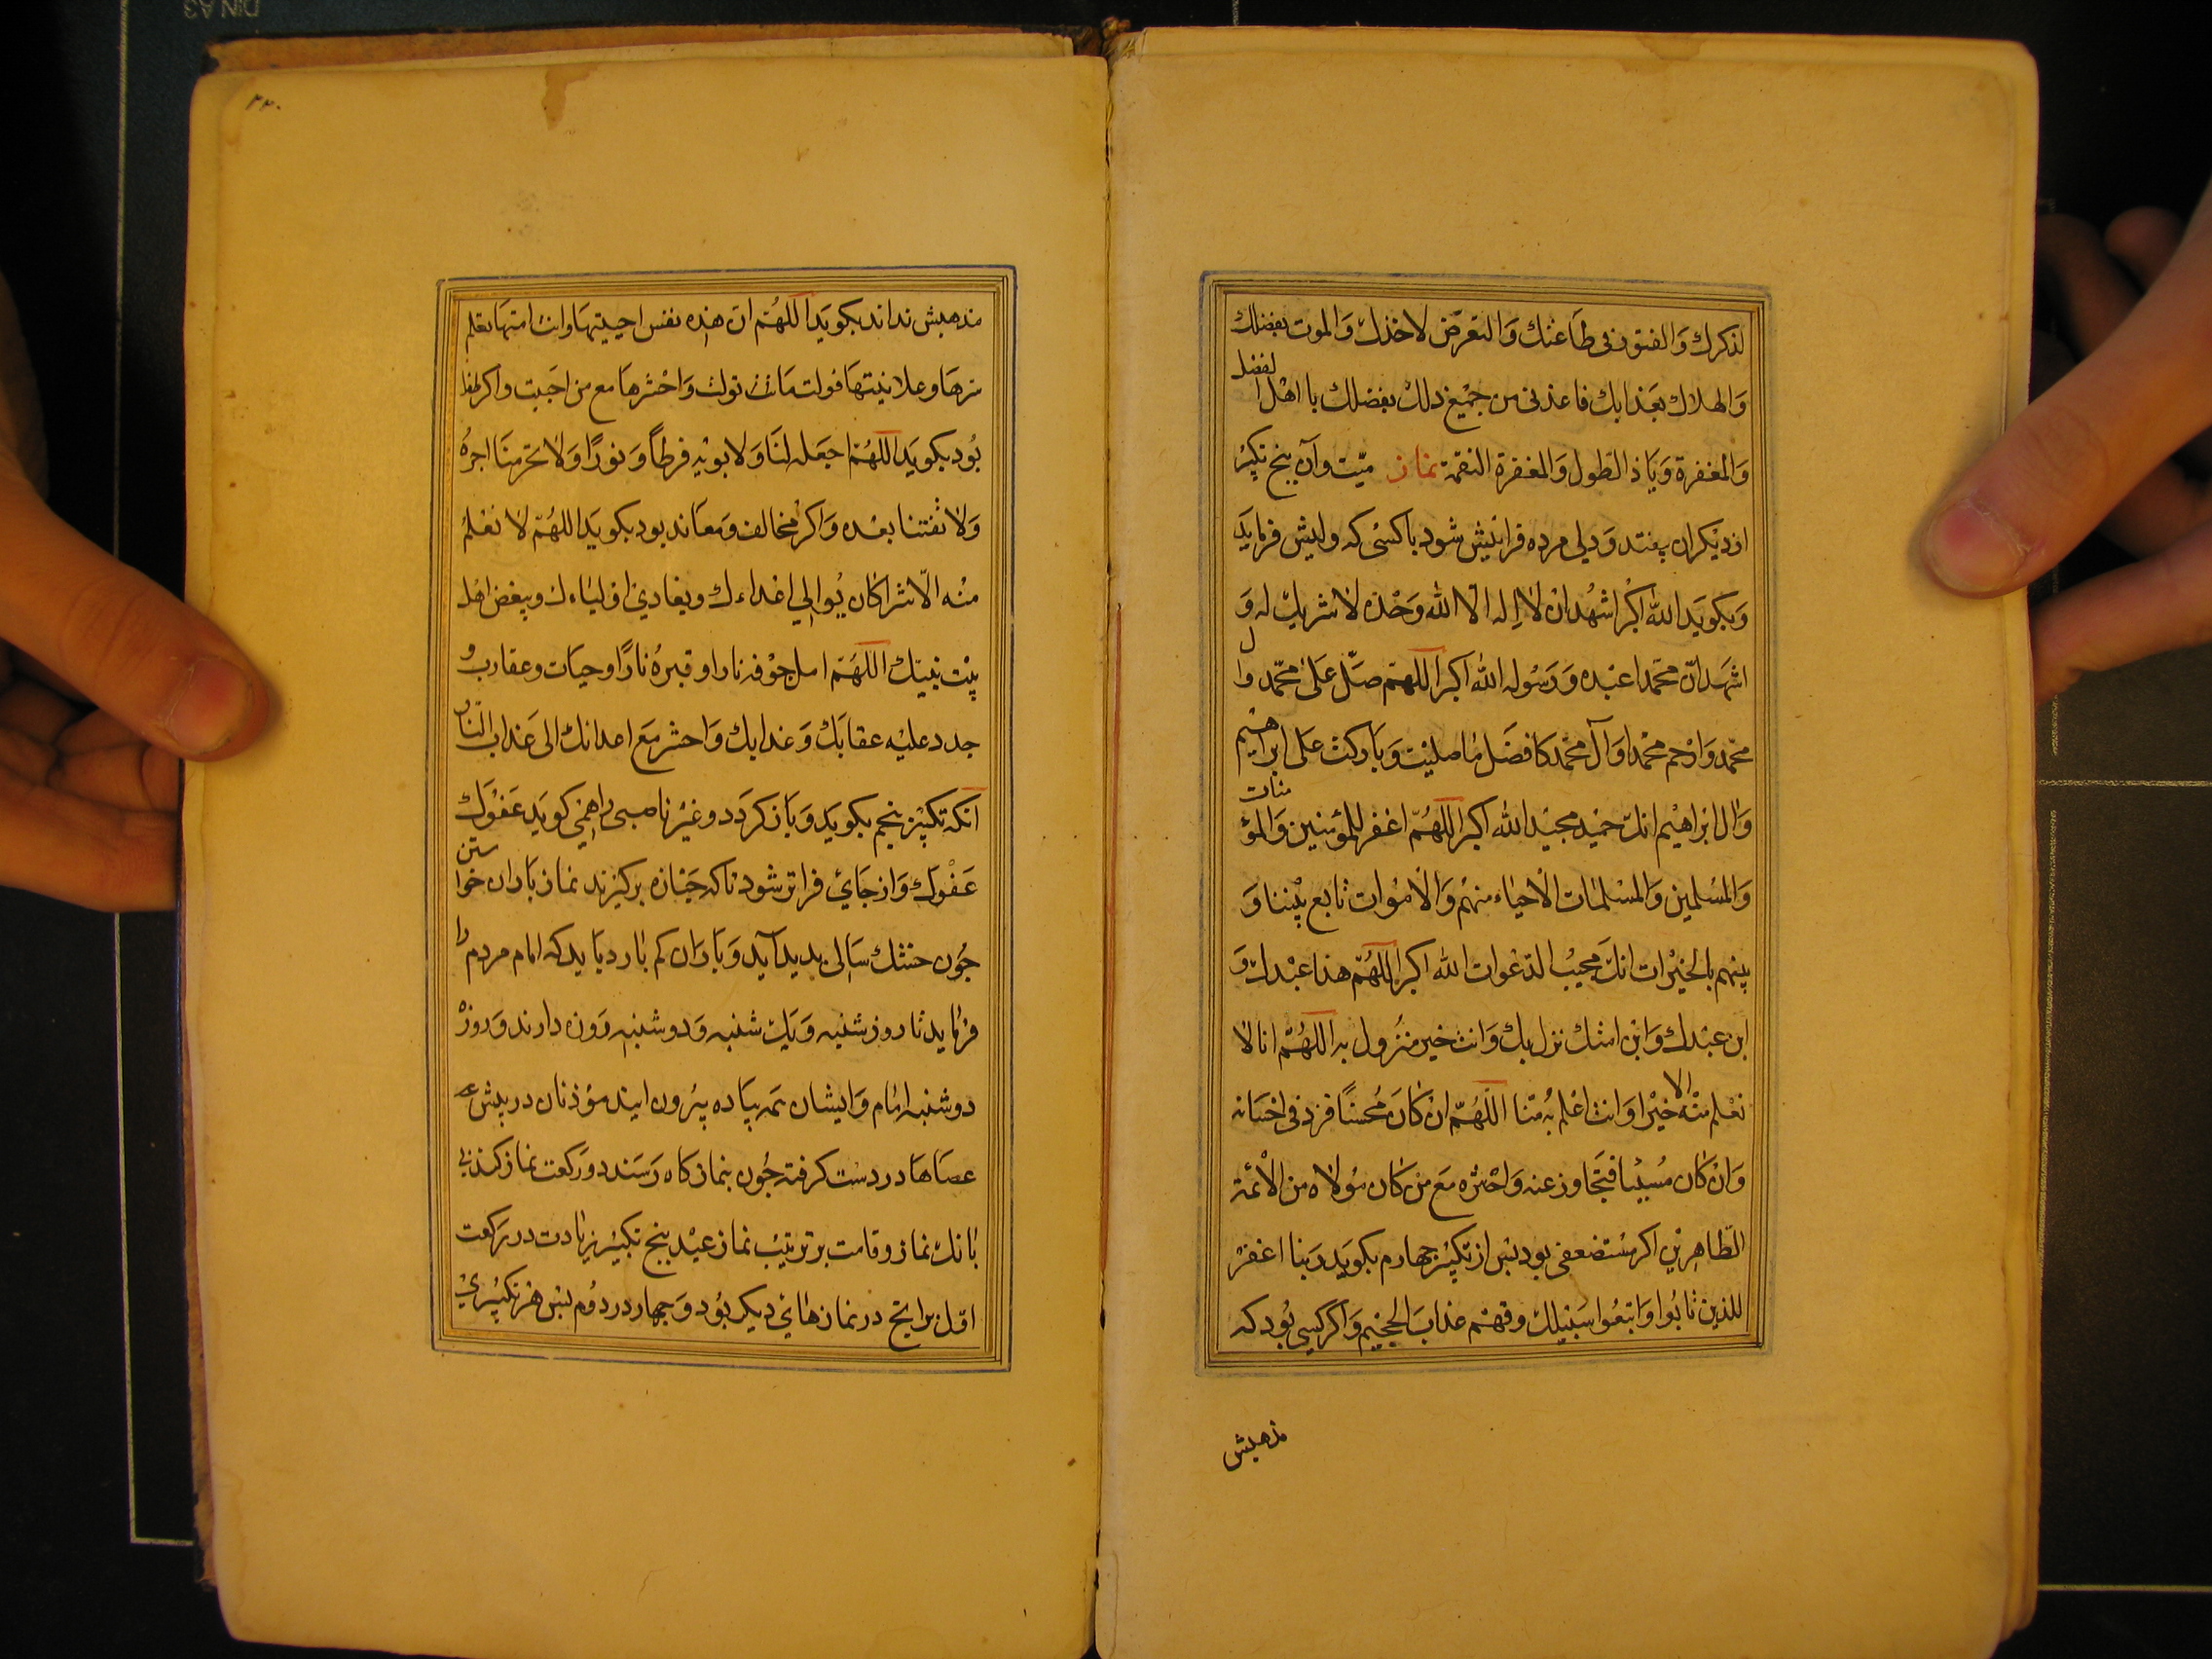 لذكرك والفتور فی طاعتك والتعرض لاخذك والموت بفضلك
والهلاك بعذابك فاعذنی من جمیع ذلك بفضلك یا اهل الفضل
والمغفرة ویاذ الطول والمغفرة النقمة نماز میت وآن پنج تکبیر
از دیکران بیفتد وولی مرده فرا پیش شود یا کسی که ولیش فرماید
وبکوید الله اکبر اشهد ان لا اله الا الله وحده لا شریك له و
اشهد ان محمدا عبده ورسوله الله اکبر اللهم صل علی محمد وال
محمد وارحم محمدا وآل محمد کافضل ما صلیت وبارکت علی ابراهیم
وال ابراهیم انك حمید مجید الله اکبر اللهم اغفر للمؤمنین والمؤمنات
والمسلمین والمسلمات الاحیاء منهم والاموات تابع بیننا و
بینهم بالخیرات انك مجیب الدعوات الله اکبر اللهم هذا عبدك و
ابن عبدك وابن امتك نزل بك وانت خیر منزول به اللهم انا لا
نعلم منه الا خیرا وانت اعلم به منا اللهم ان کان محسنا فزد فی احسانه
وان کان مسیئا فتجاوز عنه واحشره مع من کان مولاه من الائمة
الطاهرین اکر مستضعفی بود پس از تکبیر چهارم بکوید ربنا اغفر
للذین تابوا واتبعوا سبیلك وقهم عذاب الجحیم واکر کسی بود که
مذهبش
۲۲۰
مذهبش نداند بکوید اللهم ان هذه نفس احییتها وانت امتها تعلم
سرها وعلانیتها فولت ماتت تولت واحشرها مع من احبت واکر طفل
بود بکوید اللهم اجعله لنا ولابویه فرطا ونورا ولا تحرمنا اجره
ولا تفتنا بعده واکر مخالف ومعاند بود بکوید اللهم لا نعلم
منه الا شرا کان یوالی اعداءك ویعادی اولیاءك ویبغض اهل
بیت نبیك اللهم املء جوفه نارا وقبره نارا وحیات وعقارب و
جدد علیه عقابك وعذابك واحشر مع اعدائك الی عذاب النار
آنکه تکبیر پنجم بکوید وباز کردد وغیر ناصبی را همی کوید عفوك
عفوك واز جای فراتر شود تا که جنازه برکیرند نماز باران خواستن
چون خشك سالی بدید آید وباران کم بارد باید که امام مردم را
فرماید تا روز شنبه ویك شنبه ودوشنبه روزه دارند وروز
دوشنبه امام وایشان همه پیاده بیرون ایند مؤذنان در پیش همه
عصاها در دست کرفته چون بنماز کاه رسند دو رکعت نماز کند بی
بانك نماز وقامت بر ترتیب نماز عید پنج تکبیر زیادت در رکعت
اول برانچ در نمازهای دیکر بود وچهار در دوم پس هر تکبیری